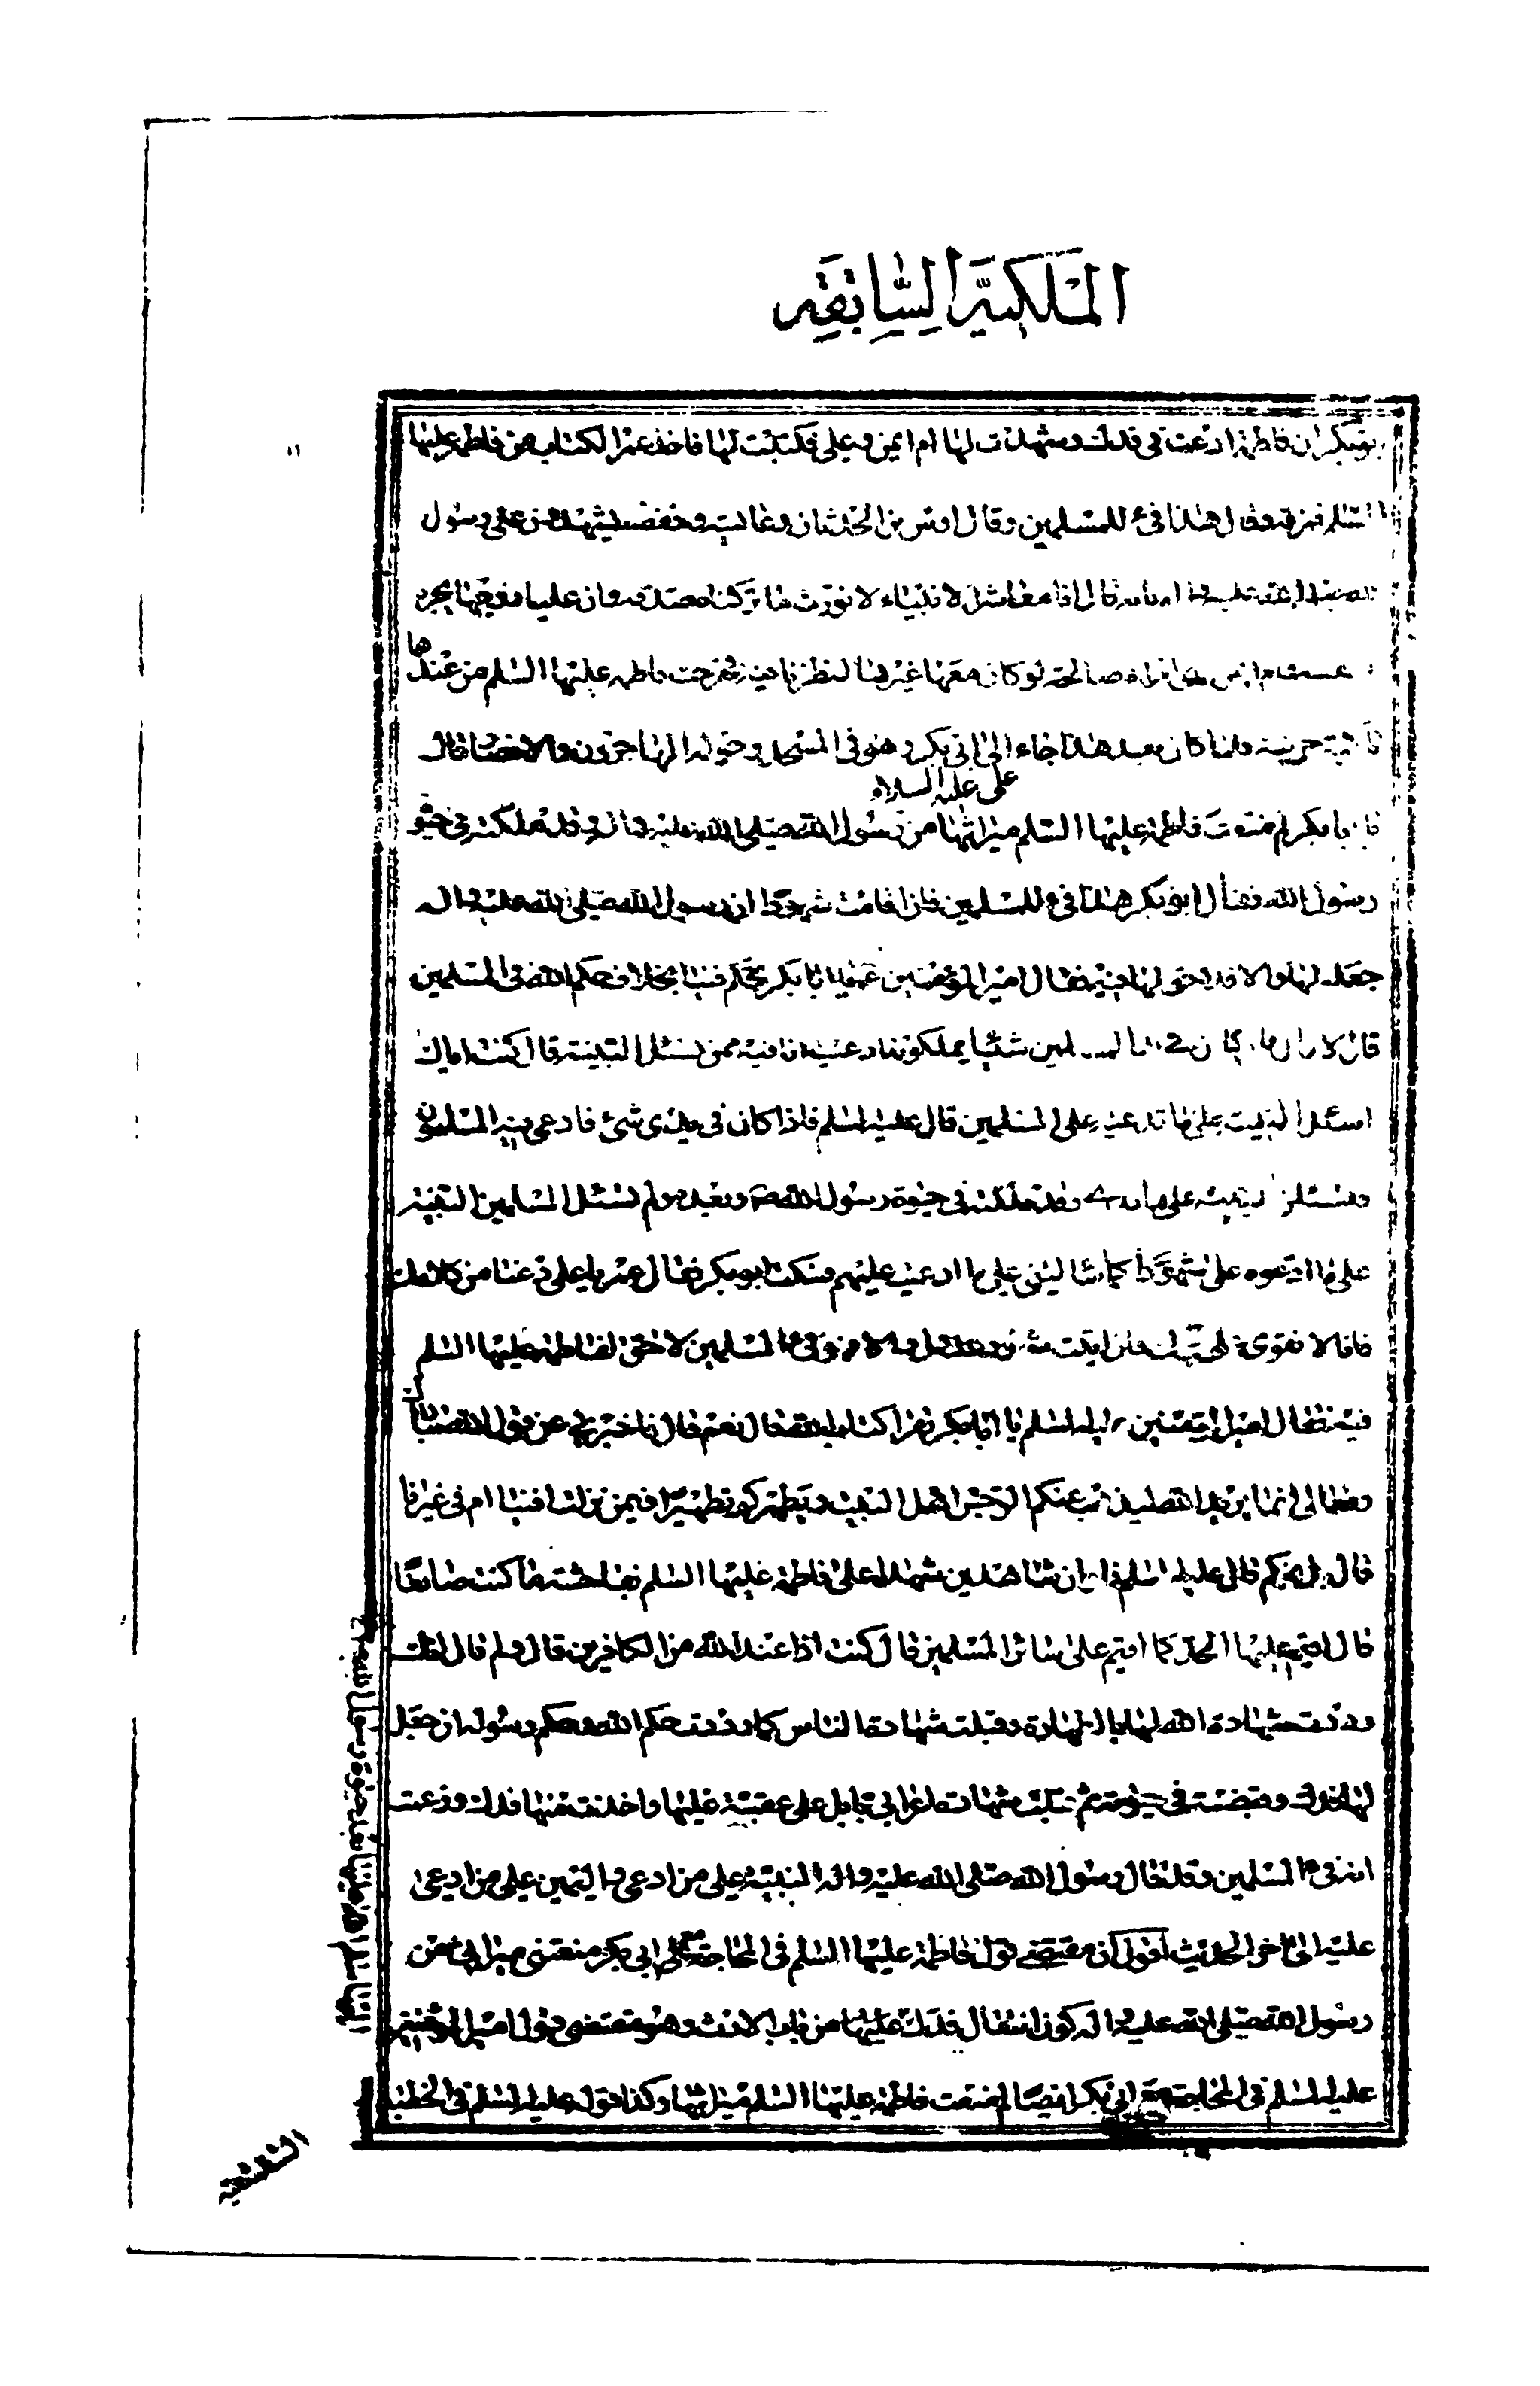 الملكية السابقة
بوبكر ان فاطمة ادعت في فدك وشهدت لها ام ايمن وعلي فكتبت لها فاخذ عمر الكتاب من فاطمة عليها
السلم فمزقه وقال هذا فئ للمسلمين وقال اوس بن الحدثان وعايشة وحفصة يشهدون على رسول
الله صلى الله عليه واله بانه قال انا معاشر الانبياء لا نورث ما تركناه صدقة وان عليا زوجها يجر
وام ايمن امراة صالحة لو كان معها غيرها لنظرنا فيه فخرجت فاطمة عليها السلم من عندها
باكية حزينة فلما كان بعد هذا جاء علي عليه السلام الى ابي بكر وهو في المسجد وحوله المهاجرون والانصار فقال
يا ابا بكر لم منعت فاطمة عليها السلم ميراثها من رسول الله صلى الله عليه واله وقد ملكته في حيوة
رسول الله فقال ابو بكر هذا فئ للمسلمين فان اقامت شهودا ان رسول الله صلى الله عليه واله
جعله لها والا فلا حق لها فيه فقال امير المؤمنين يا ابا بكر تحكم فينا بخلاف حكم الله في المسلمين
قال لا قال فان كان في يد المسلمين شيئا يملكونه ادعيت انا فيه ممن تسئل البينة قال كنت اياك
اسئل البينة على ما تدعيه على المسلمين قال عليه السلم فاذا كان في يدي شئ فادعى فيه المسلمون
فتسئلني البينة على ما في يدي وقد ملكته في حيوة رسول الله ص وبعده ولم تسئل المسلمين البينة
على ما ادعوه على شهودا كما سالتني على ما ادعيت عليهم فسكت ابو بكر فقال عمر يا علي دعنا من كلامك
فانا لا نقوى على حججك فان اتيت شهودا عدولا والا فهو فئ المسلمين لا حق لك ولا لفاطمة عليها السلم
فيه فقال امير المؤمنين عليه السلم يا ابا بكر تقرا كتاب الله فقال نعم قال فاخبرني عن قول الله تبارك
وتعالى انما يريد الله ليذهب عنكم الرجس اهل البيت ويطهركم تطهيرا فيمن نزلت افينا ام في غيرنا
قال بل فيكم قال عليه السلم فلو ان شاهدين شهدا على فاطمة عليها السلم بفاحشة ما كنت صانعا
قال اقيم عليها الحد كما اقيم على سائر المسلمين قال كنت اذا عند الله من الكافرين قال ولم قال لانك
رددت شهادة الله لها بالطهارة وقبلت شهادة الناس كما رددت حكم الله وحكم رسوله ان جعل
لها فدك وقبضته في حيوته ثم قبلت شهادة اعرابي بايل على عقبيه عليها واخذت منها فدك وزعمت
انه فئ المسلمين وقد قال رسول الله صلى الله عليه واله البينة على من ادعى واليمين على من ادعي
عليه الى اخر الحديث اقول ان مقتضى قول فاطمة عليها السلم في المحاجة مع ابي بكر منعتني ميراثي من
رسول الله صلى الله عليه واله كون انتقال فدك عليها من باب الارث وهو مقتضى قول امير المؤمنين
عليه السلم في المحاجة مع ابي بكر ايضا لم منعت فاطمة عليها السلم ميراثها وكذا قوله عليه السلم في الخطبة
الشقشقية